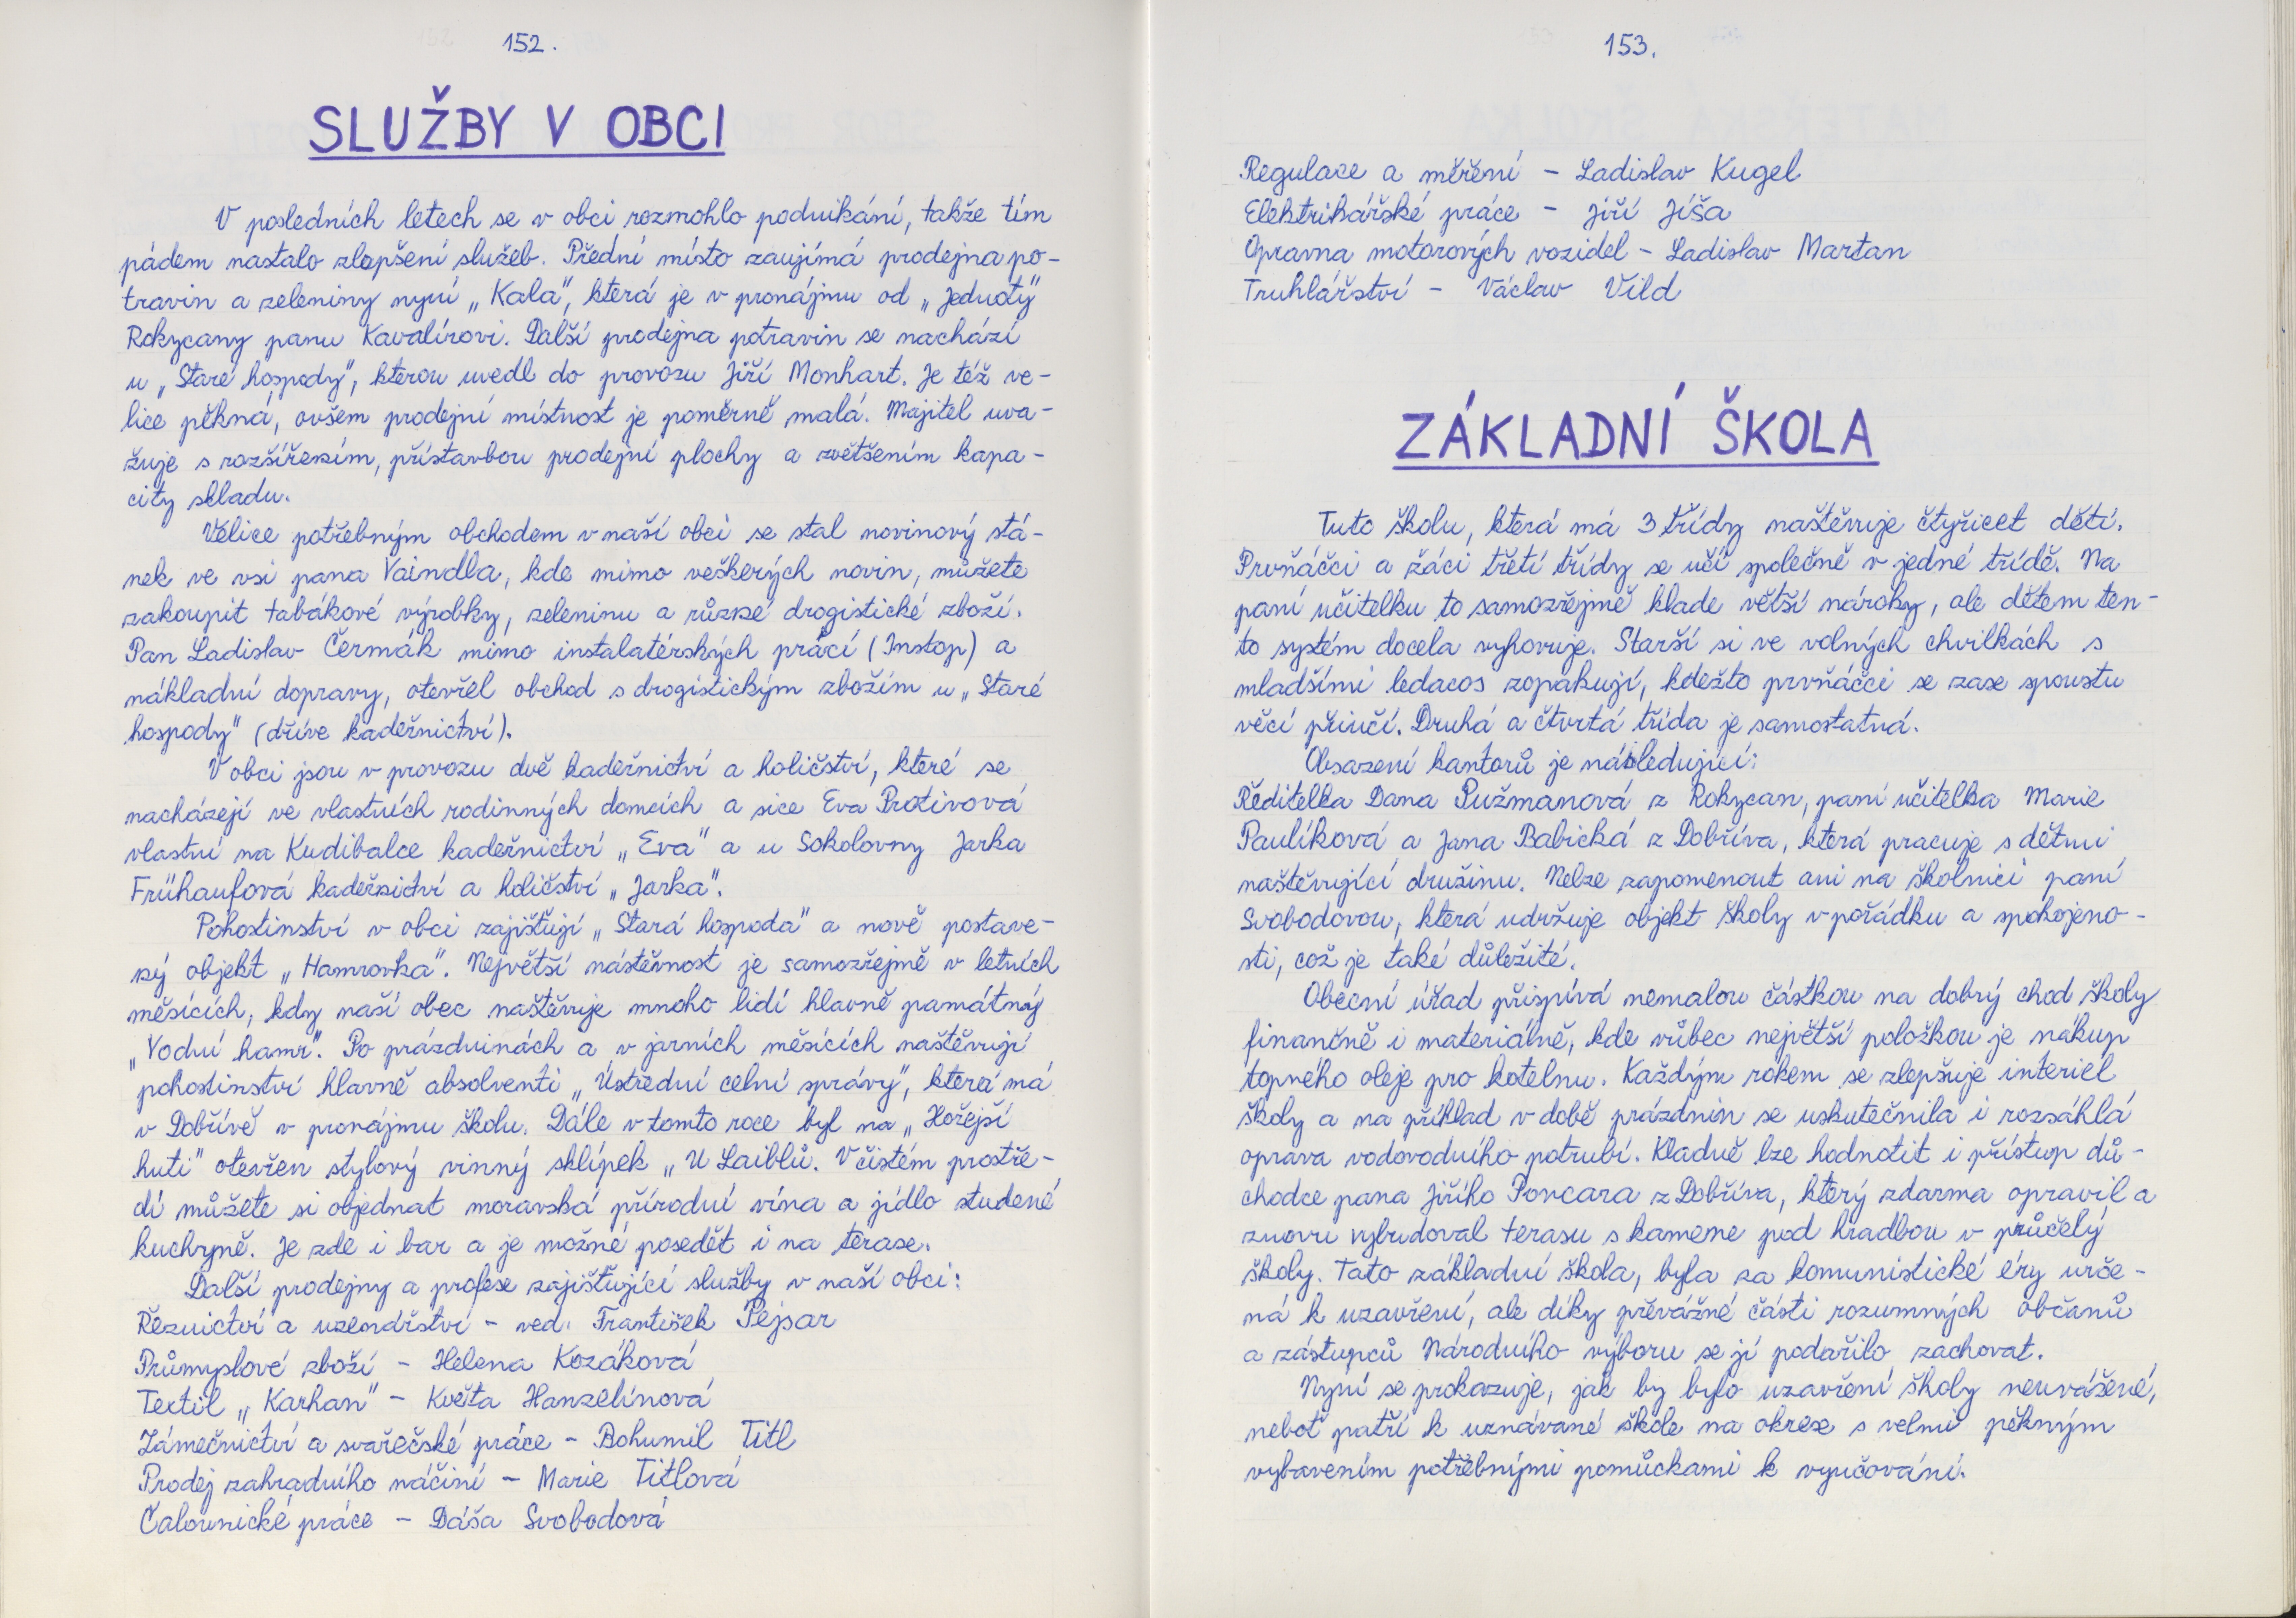 152.
SLUŽBY V OBCI
V posledních letech se v obci rozmohlo podnikání, takže tím
pádem nastalo zlepšení služeb. Přední místo zaujímá prodejna po-
travin a zeleniny nyní „Kala", která je v pronájmu od „Jednoty"
Rokycany panu Kavalírovi. Další prodejna potravin se nachází
u „Staré hospody", kterou uvedl do provozu Jiří Monhart. Je též ve-
lice pěkná, ovšem prodejní místnost je poměrně malá. Majitel uva-
žuje s rozšířením, přístavbou prodejní plochy a zvětšením kapa-
city skladu.
Velice potřebným obchodem v naší obci se stal novinový stá-
nek ve vsi pana Vaindla, kde mimo veškerých novin, můžete
zakoupit tabákové výrobky, zeleninu a různé drogistické zboží.
Pan Ladislav Čermák mimo instalatérských prácí (Instop) a
nákladní dopravy, otevřel obchod s drogistickým zbožím u „Staré
hospody" (dříve kadeřnictví).
V obci jsou v provozu dvě kadeřnictví a holičství, které se
nacházejí ve vlastních rodinných domcích a sice Eva Protivová
vlastní na Kudibalce kadeřnictví „Eva" a u Sokolovny Jarka
Frühaufová kadeřnictví a holičství „Jarka".
Pohostinství v obci zajišťují „Stará hospoda" a nově postave-
ný objekt „Hamrovka". Největší návštěvnost je samozřejmě v letních
měsících, kdy naší obec naštěvuje mnoho lidí hlavně památný
„Vodní hamr". Po prázdninách a v jarních měsících naštěvují
pohostinství hlavně absolventi „Ústřední celní správy", která má
v Dobřívě v pronájmu školu. Dále v tomto roce byl na „Hořejší
huti" otevřen stylový vinný sklípek „U Laiblů. V čistém prostře-
dí můžete si objednat moravská přírodní vína a jídlo studené
kuchyně. Je zde i bar a je možné posedět i na terase.
Další prodejny a profese zajišťující služby v naší obci:
Řeznictví a uzenářství - ved. František Pejsar
Průmyslové zboží - Helena Kozáková
Textil „Karhan" - Květa Hanzelínová
Zámečnictví a svařečské práce - Bohumil Titl
Prodej zahradního náčiní - Marie Titlová
Čalounické práce - Dáša Svobodová
153.
Regulace a měření - Ladislav Kugel
Elektrikářské práce - Jiří Jíša
Opravna motorových vozidel - Ladislav Martan
Truhlářství - Václav Vild
ZÁKLADNÍ ŠKOLA
Tuto školu, která má 3 třídy naštěvuje čtyřicet dětí.
Prvňáčci a žáci třetí třídy se učí společně v jedné třídě. Na
paní učitelku to samozřejmě klade větší nároky, ale dětem ten-
to systém docela vyhovuje. Starší si ve volných chvilkách s
mladšími ledacos zopakují, kdežto prvňáčci se zase spoustu
věcí přiučí. Druhá a čtvrtá třída je samostatná.
Obsazení kantorů je následující:
Ředitelka Dana Pužmanová z Rokycan, paní učitelka Marie
Paulíková a Jana Babická z Dobříva, která pracuje s dětmi
naštěvující družinu. Nelze zapomenout ani na školnici paní
Svobodovou, která udržuje objekt školy v pořádku a spokojeno-
sti, což je také důležité.
Obecní úřad přispívá nemalou částkou na dobrý chod školy
finančně i materiálně, kde vůbec největší položkou je nákup
topného oleje pro kotelnu. Každým rokem se zlepšuje interiél
školy a na příklad v době prázdnin se uskutečnila i rozsáhlá
oprava vodovodního potrubí. Kladně lze hodnotit i přístup dů-
chodce pana Jiřího Poncara z Dobříva, který zdarma opravil a
znovu vybudoval terasu s kamene pod hradbou v průčelý
školy. Tato základní škola, byla za komunistické éry urče-
ná k uzavření, ale díky převážné části rozumných občanů
a zástupců Národního výboru se jí podařilo zachovat.
Nyní se prokazuje, jak by bylo uzavření školy neuvážené,
neboť patří k uznávané škole na okrese s velmi pěkným
vybavením potřebnými pomůckami k vyučování.